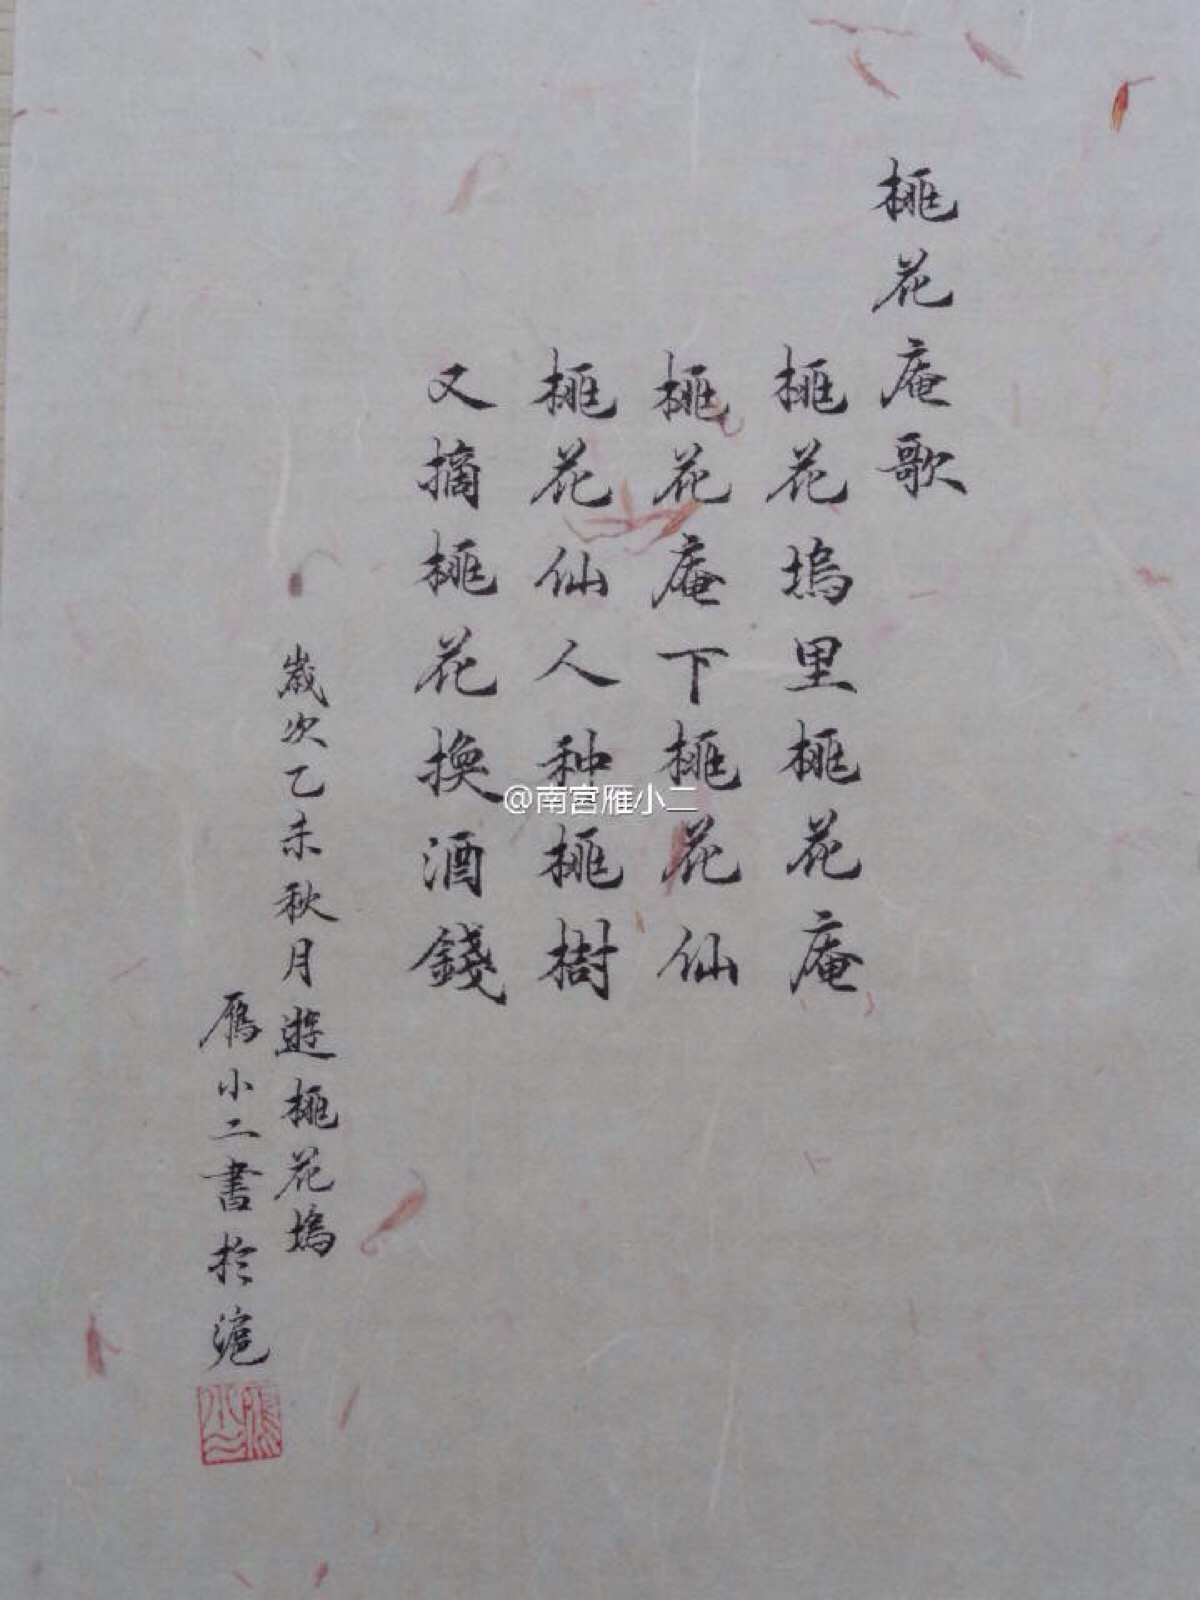 桃花庵歌
桃花塢里桃花庵
桃花庵下桃花仙
桃花仙人种桃樹
又摘桃花換酒錢
歲次乙未秋月遊桃花塢
鴈小二書於滬
@南宫雁小二
鴈小二